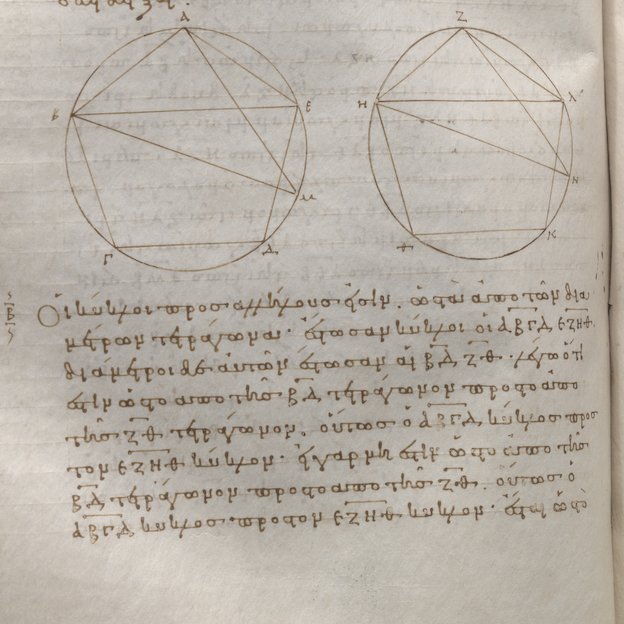 Α
Ζ
Β
Ε
Η
Λ
Μ
Ν
Γ
Δ
Θ
Κ
β
Οἱ κύκλοι πρὸς ἀλλήλους εἰσὶν, ὡς τὰ ἀπὸ τῶν δια
μέτρων τετράγωνα· ἔστωσαν κύκλοι οἱ ΑΒΓΔ, ΕΖΗΘ,
διάμετροι δὲ αὐτῶν ἔστωσαν αἱ ΒΔ, ΖΘ· λέγω ὅτι
ἐστὶν ὡς τὸ ἀπὸ τῆς ΒΔ τετράγωνον πρὸς τὸ ἀπὸ
τῆς ΖΘ τετράγωνον, οὕτως ὁ ΑΒΓΔ κύκλος πρὸς
τὸν ΕΖΗΘ κύκλον· εἰ γὰρ μή ἐστιν ὡς τὸ ἀπὸ τῆς
ΒΔ τετράγωνον πρὸς τὸ ἀπὸ τῆς ΖΘ, οὕτως ὁ
ΑΒΓΔ κύκλος πρὸς τὸν ΕΖΗΘ κύκλον· ἔσται ὡς τὸ